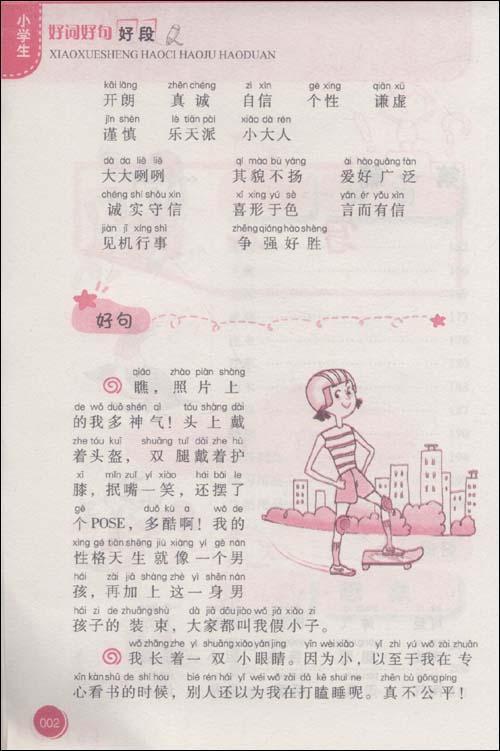 小学生
好词好句好段
XIAOXUESHENG HAOCI HAOJU HAODUAN
kāi lǎng zhēn chéng zì xìn gè xìng qiān xū
开朗 真诚 自信 个性 谦虚
jǐn shèn lè tiān pài xiǎo dà rén
谨慎 乐天派 小大人
dà dà liē liē qí mào bù yáng ài hào guǎng fàn
大大咧咧 其貌不扬 爱好广泛
chéng shí shǒu xìn xǐ xíng yú sè yán ér yǒu xìn
诚实守信 喜形于色 言而有信
jiàn jī xíng shì zhēng qiáng hào shèng
见机行事 争强好胜
好句
qiáo zhào piàn shàng
瞧，照片上
de wǒ duō shén qì tóu shàng dài
的我多神气！头上戴
zhe tóu kuī shuāng tuǐ dài zhe hù
着头盔，双腿戴着护
xī mǐn zuǐ yí xiào hái bǎi le
膝，抿嘴一笑，还摆了
gè duō kù a wǒ de
个POSE，多酷啊！我的
xìng gé tiān shēng jiù xiàng yí gè nán
性格天生就像一个男
hái zài jiā shàng zhè yì shēn nán
孩，再加上这一身男
hái zi de zhuāng shù dà jiā dōu jiào wǒ jiǎ xiǎo zi
孩子的装束，大家都叫我假小子。
wǒ zhǎng zhe yì shuāng xiǎo yǎn jing yīn wèi xiǎo yǐ zhì yú wǒ zài zhuān
我长着一双小眼睛。因为小，以至于我在专
xīn kàn shū de shí hou bié rén hái yǐ wéi wǒ zài dǎ kē shuì ne zhēn bù gōng píng
心看书的时候，别人还以为我在打瞌睡呢。真不公平！
002